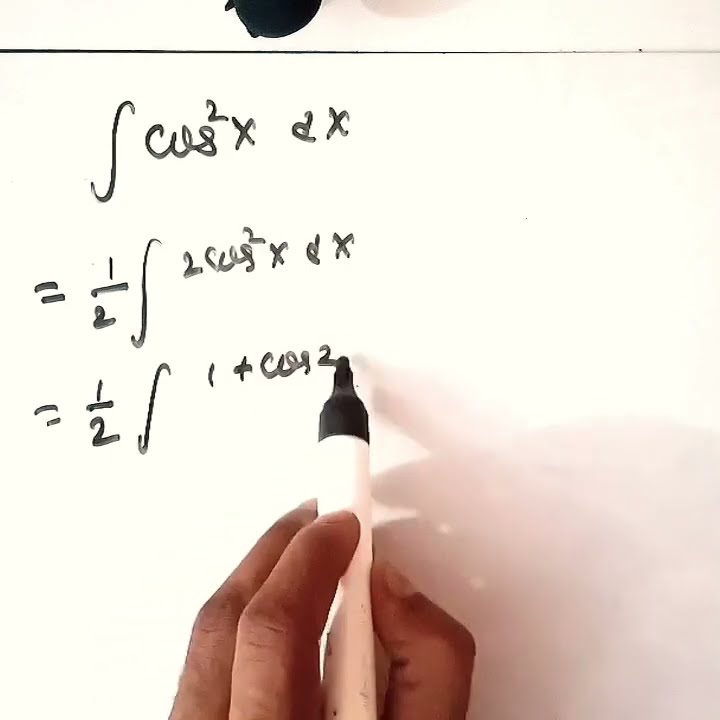 ∫ cos²x dx
= 1/2 ∫ 2cos²x dx
= 1/2 ∫ 1 + cos 2